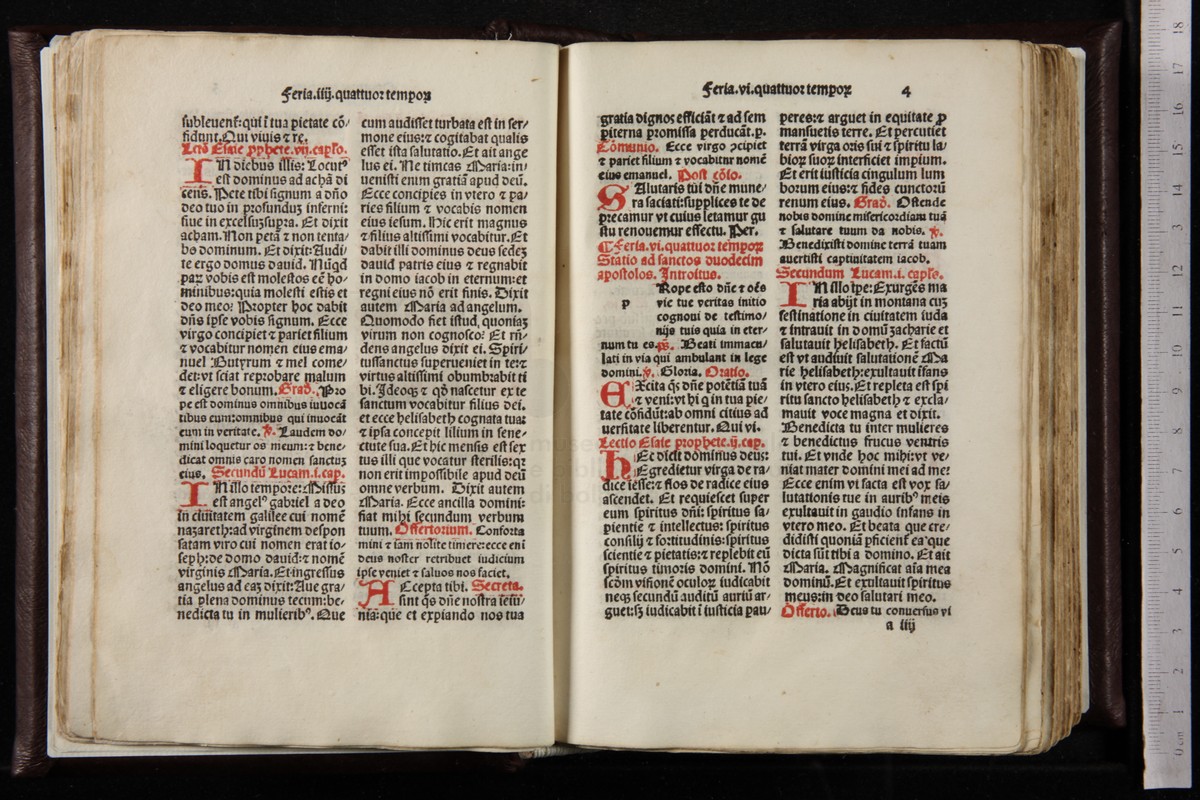 Feria.iiij.quattuor temporꝝ
subleuent᷑: qui ī tua pietate cō/
fidunt. Qui viuis ⁊ re.
Lectō Esaie ꝓphete.vii.capło.
IN diebus illis: Locut⁹
est dominus ad achā di
cens. Pete tibi signum a dn̄o
deo tuo in profundū inferni:
siue in excelsū supra. Et dixit
acham. Non petā ⁊ non tenta/
bo dominum. Et dixit: Audi/
te ergo domus dauid. Nūqd
parū vobis est molestos eē ho/
minibus: quia molesti estis et
deo meo? Propter hoc dabit
dn̄s ipse vobis signum. Ecce
virgo concipiet ⁊ pariet filium
⁊ vocabitur nomen eius ema/
nuel Butyrum ⁊ mel come/
det: vt sciat reprobare malum
⁊ eligere bonum. Grad. Pro
pe est dominus omnibus inuocā
tibus eum: omnibus qui inuocāt
eum in veritate. ℣. Laudem do/
mini loquetur os meum: ⁊ bene/
dicat omnis caro nomen sanctuꝫ
eius. Secundū Lucam.i.cap.
IN illo tempore: Missus
est angel⁹ gabriel a deo
in ciuitatem galilee cui nomē
nazareth: ad virginem despon
satam viro cui nomen erat io/
seph: de domo dauid: ⁊ nomē
virginis Maria. Et ingressus
angelus ad eaꝫ dixit: Aue gra/
tia plena dominus tecum: be/
nedicta tu in mulierib⁹. Que
cum audisset turbata est in ser/
mone eius: ⁊ cogitabat qualis
esset ista salutatio. Et ait ange
lus ei. Ne timeas Maria: in/
uenisti enim gratiā apud deū.
Ecce concipies in vtero ⁊ pa/
ries filium ⁊ vocabis nomen
eius iesum. Hic erit magnus
⁊ filius altissimi vocabitur. Et
dabit illi dominus deus sedeꝫ
dauid patris eius ⁊ regnabit
in domo iacob in eternum: et
regni eius nō erit finis. Dixit
autem Maria ad angelum.
Quomodo fiet istud, quoniaꝫ
virum non cognosco? Et rn̄/
dens angelus dixit ei. Spiri/
tussanctus superueniet in te: ⁊
virtus altissimi obumbrabit ti
bi. Ideoqꝫ ⁊ qď nascetur ex te
sanctum vocabitur filius dei.
et ecce helisabeth cognata tua:
⁊ ipsa concepit filium in sene/
ctute sua. Et hic mensis est sex
tus illi que vocatur sterilis: qꝛ
non erit impossibile apud deū
omne verbum. Dixit autem
Maria. Ecce ancilla domini:
fiat mihi secundum verbum
tuum. Offertorium. Conforta
mini ⁊ iam nolite timere: ecce eni
deus noster retribuet iudicium
ipse veniet ⁊ saluos nos faciet.
ACcepta tibi. Secreta.
sint q̄s dn̄e nostra ieiu/
nia: que et expiando nos tua
Feria.vi.quattuor temporꝝ 4
gratia dignos efficiāt ⁊ ad sem
piterna promissa perducāt. p.
Cōmunio. Ecce virgo ꝯcipiet
⁊ pariet filium ⁊ vocabitur nomē
eius emanuel. Post cōio.
SAlutaris tui dn̄e mune/
ra saciati: supplices te de
precamur vt cuius letamur gu
stu renouemur effectu. Per.
¶ Feria.vi.quattuor temporꝝ
Statio ad sanctos duodecim
apostolos. Introitus.
p Rope esto dn̄e ⁊ oēs
vie tue veritas initio
cognoui de testimo/
nijs tuis quia in eter/
num tu es. ps. Beati immacu/
lati in via qui ambulant in lege
domini. ℣. Gloria. Oratio.
EXcita q̄s dn̄e potētiā tuā
⁊ veni: vt hi q̄ in tua pie/
tate cōfidūt: ab omni citius ad
uersitate liberentur. Qui vi.
Lectio Esaie prophete.ij.cap.
hEc dicit dominus deus:
Egredietur virga de ra/
dice iesse: ⁊ flos de radice eius
ascendet. Et requiescet super
eum spiritus dn̄i: spiritus sa/
pientie ⁊ intellectus: spiritus
consilij ⁊ fortitudinis: spiritus
scientie ⁊ pietatis: ⁊ replebit eū
spiritus timoris domini. Nō
scd̄m visionē oculoꝝ iudicabit
neqꝫ secundū auditū auriū ar/
guet: sꝫ iudicabit ī iusticia pau/
peres: ⁊ arguet in equitate ꝓ
mansuetis terre. Et percutiet
terrā virga oris sui ⁊ spiritu la/
bioꝝ suoꝝ interficiet impium.
Et erit iusticia cingulum lum
borum eius: ⁊ fides cinctoriū
renum eius. Grad. Ostende
nobis domine misericordiam tuā
⁊ salutare tuum da nobis. ℣.
Benedixisti domine terrā tuam
auertisti captiuitatem iacob.
Secundum Lucam.i.capło.
IN illo tpe: Exurgēs ma
ria abijt in montana cuꝫ
festinatione in ciuitatem iuda
⁊ intrauit in domū zacharie et
salutauit helisabeth. Et factū
est vt audiuit salutationē Ma
rie helisabeth: exultauit īfans
in vtero eius. Et repleta est spi
ritu sancto helisabeth ⁊ excla/
mauit voce magna et dixit.
Benedicta tu inter mulieres
⁊ benedictus frucus ventris
tui. Et vnde hoc mihi: vt ve/
niat mater domini mei ad me?
Ecce enim vt facta est vox sa/
lutationis tue in aurib⁹ meis
exultauit in gaudio infans in
vtero meo. Et beata que cre/
didisti quoniā ꝑficient᷑ ea que
dicta sūt tibi a domino. Et ait
Maria. Magnificat aīa mea
dominū. Et exultauit spiritus
meus: in deo salutari meo.
Offerto. Deus tu conuersus vi
a iiij